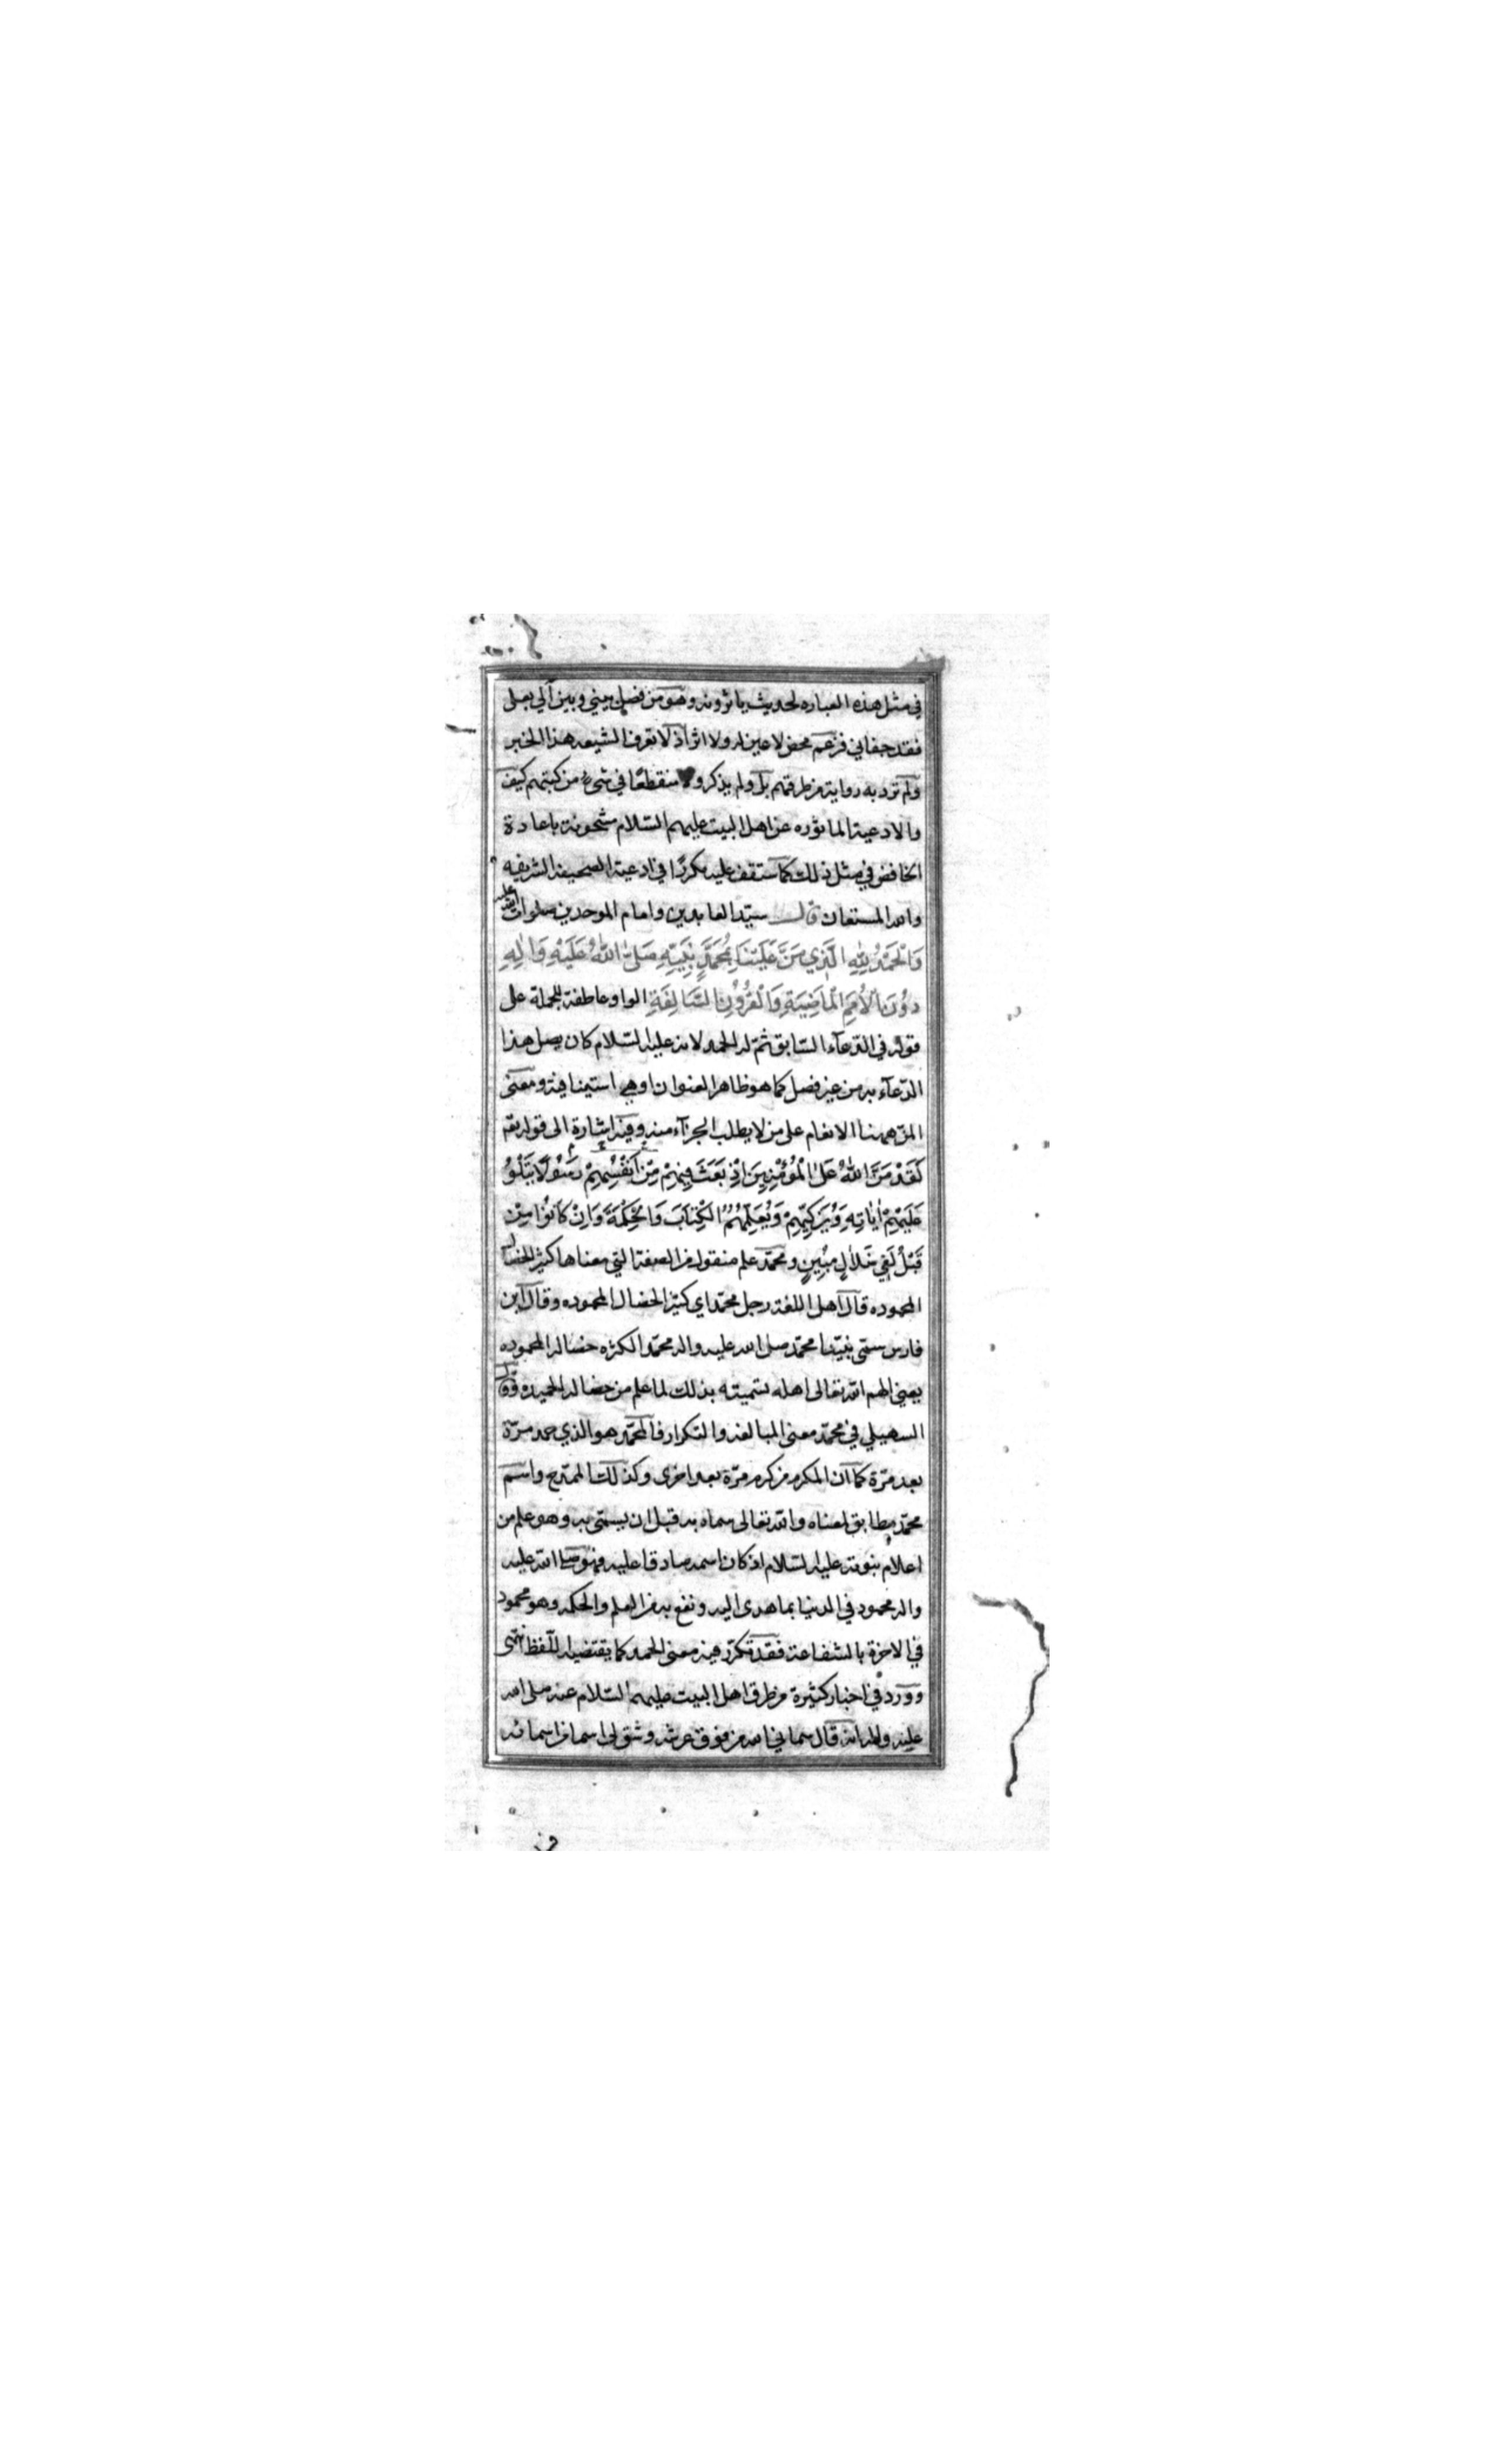 في مثل هذه العباره لحديث ياثرونه وهو من فصل بيني وبين آلي بعلى
فقد جفاني فزعم محض لا عين له ولا اثر اذ لا تعرف الشيعه هذا الخبر
ولم ترد به رواية من طرقهم بل ولم يذكر ولا منقطعًا في شيء من كتبهم كيف
والادعية الماثوره عن اهل البيت عليهم السّلام مشحونة باعادة
الخافض في مثل ذلك كما ستقف عليه مكررًا في ادعية الصحيفة الشريفه
والله المستعان قال سيّد العابدين وامام الموحدين صلوات الله عليه
وَالْحَمْدُ لِلّٰهِ الَّذِي مَنَّ عَلَيْنَا بِمُحَمَّدٍ نَبِيِّهِ صَلَّى اللّٰهُ عَلَيْهِ وَاٰلِهِ
دُوْنَ الْاُمَمِ الْمَاضِيَةِ وَالْقُرُوْنِ السَّالِفَةِ الواو عاطفة للجملة على
قوله في الدّعآء السّابق ثمّ له الحمد لانه عليه السّلام كان يصل هذا
الدّعآء به من غير فصل كما هو ظاهر العنوان او هي استينافية ومعنى
المنّ ههنا الانعام على من لا يطلب الجزآء منه وفيه اشارة الى قوله تعم
لَقَدْ مَنَّ اللّٰهُ عَلَى الْمُؤْمِنِيْنَ اِذْ بَعَثَ فِيْهِمْ مِّنْ اَنْفُسِهِمْ رَسُوْلًا يَتْلُوْ
عَلَيْهِمْ اٰيَاتِهِ وَيُزَكِّيْهِمْ وَيُعَلِّمُهُمُ الْكِتَابَ وَالْحِكْمَةَ وَاِنْ كَانُوْا مِنْ
قَبْلُ لَفِي ضَلَالٍ مُبِيْنٍ ومحمّد علم منقول من الصفة التي معناها كثير الخصال
المحموده قال اهل اللغة رجل محمّد اي كثير الخصال المحموده وقال ابن
فارس سمّي نبيّنا محمّد صلى الله عليه واله محمّدا لكثره خصاله المحموده
يعني الهم الله تعالى اهله تسميته بذلك لما علم من خصاله الحميده وقال
السهيلي في محمّد معنى المبالغه والتكرار فالمحمّد هو الذي حمد مرّة
بعد مرّة كما ان المكرم من كرم مرّة بعد اخرى وكذلك الممدّح واسم
محمّد مطابق لمعناه والله تعالى سماه به قبل ان يسمّى به وهو علم من
اعلام نبوته عليه السّلام اذ كان اسمه صادقا عليه فهو صلى الله عليه
واله محمود في الدنيا بما هدى اليه ونفع به من العلم والحكمه وهو محمود
في الاخرة بالشفاعة فقد تكرّر فيه معنى الحمد كما يقتضيه اللّفظ انتهى
وورد في اخبار كثيرة من طرق اهل البيت عليهم السّلام عنه صلى الله
عليه واله انه قال سماني الله من فوق عرشه وشق لي اسما من اسمائه